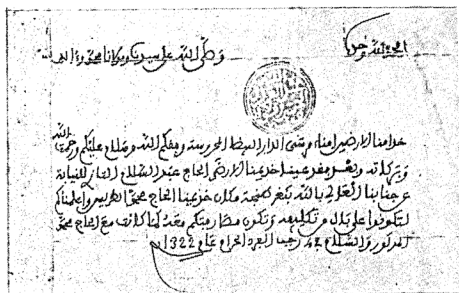 الحمد لله وحده
وصلى الله على سيدنا ومولانا محمد وآله
خدامنا الأرضين أمناء مرسى الدار البيضاء المحروسة وفقكم الله وسلام عليكم ورحمة الله
وبركاته وبعد فقد عينا خديمنا الأرضى الحاج عبد السلام للنيابة
عن جنابنا العالي بالله بثغر طنجة مكان خديمنا الحاج محمد الطريس وأعلمناكم
لتكونوا على بال وتكون معه كما كانت مع الحاج محمد
المذكور والسلام في رجب الفرد الحرام عام 1322